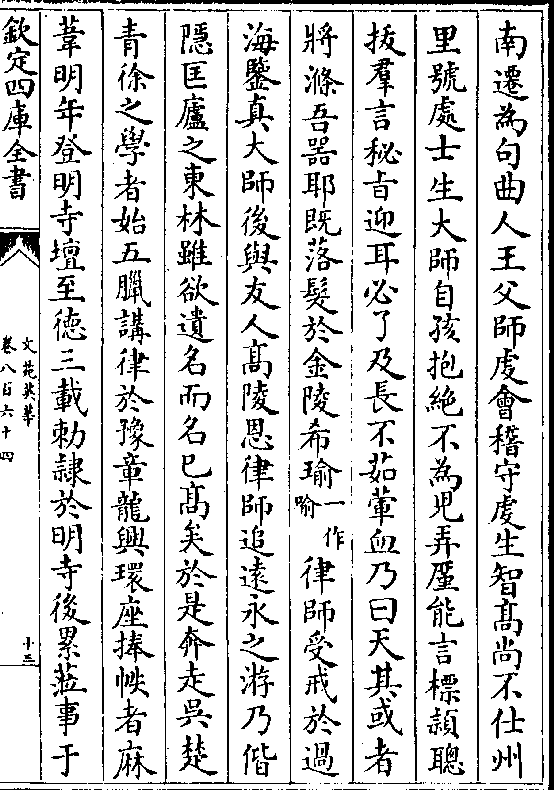 南遷為句曲人王父師虔會稽守虔生智髙尚不仕州
里號處士生大師自孩抱絶不為兒弄厪能言標頴聰
㧞羣言秘㫖迎耳必了及長不茹葷血乃曰天其或者
將滌吾器耶既落髮於金陵希瑜一作喻律師受戒於過
海鑒真大師後與友人髙陵恩律師追遠永之游乃偕
隠匡廬之東林雖欲遺名而名已髙矣於是奔走吳楚
青徐之學者始五臘講律於豫章龍興環座捧帙者麻
葦明年登明寺壇至徳三載勅隷於明寺後累蒞事于
欽定四庫全書
文苑英華
卷八百六十四
十三